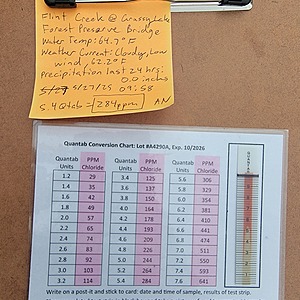 Flint Creek @ Grassy Lake
Forest Preserve Bridge
Water Temp: 64.7°F
Weather Current: Cloudy, Low
wind, 62.2°F
Precipitation last 24 hrs:
0.0 inches
5/27/25 09:58
AM
5.4 Qtab = 284ppm
Quantab Conversion Chart: Lot #A4290A, Exp. 10/2026
Quantab Units PPM Chloride Quantab Units PPM Chloride Quantab Units PPM Chloride
1.2 29 3.4 125 5.6 306
1.4 35 3.6 137 5.8 329
1.6 42 3.8 150 6.0 354
1.8 49 4.0 164 6.2 381
2.0 57 4.2 178 6.4 410
2.2 65 4.4 193 6.6 441
2.4 74 4.6 209 6.8 474
2.6 83 4.8 226 7.0 511
2.8 92 5.0 244 7.2 550
3.0 103 5.2 264 7.4 593
3.2 114 5.4 284 7.6 641
Write on a post-it and stick to card: date and time of sample, results of test strip,